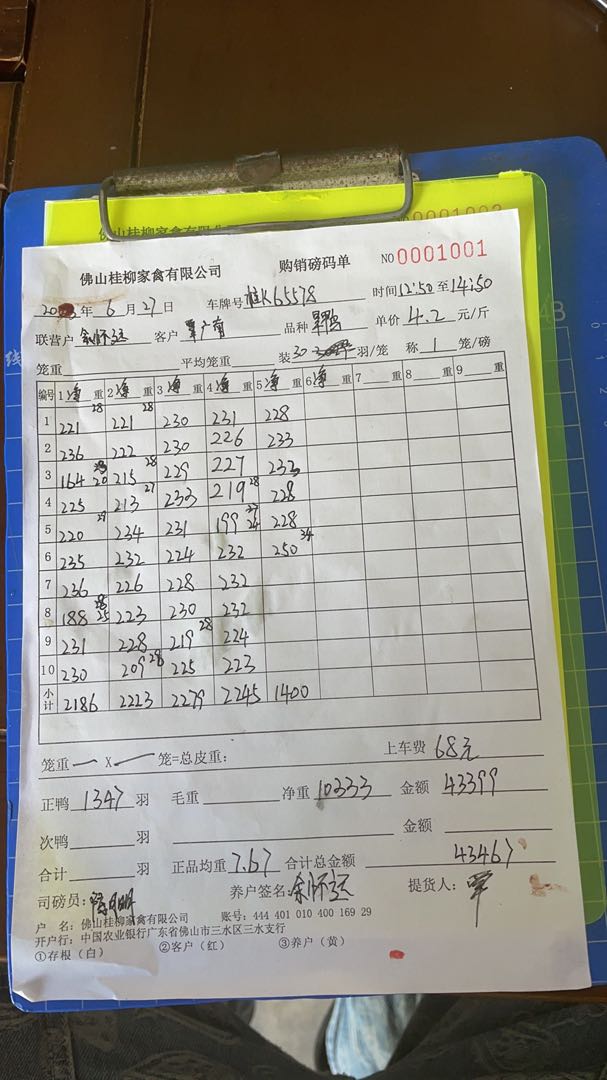 佛山桂柳家禽有限公司 购销磅码单 NO 0001001
年 6 月 27 日 车牌号 桂K65578 时间 12:50 至 14:50
联营户 客户 品种 单价 4.2 元/斤
笼重 平均笼重 装 30 羽/笼 称 1 笼/磅
编号 1 净 重 2 净 重 3 净 重 4 净 重 5 净 重 6 净 重 7 重 8 重 9 重
1 221 28 221 28 230 231 228
2 236 222 230 226 233
3 164 20 215 28 229 227 232
4 225 213 27 233 219 28 228
5 220 29 234 231 199 24 228
6 235 232 224 232 250 34
7 236 226 228 232
8 188 25 223 230 232
9 231 228 219 28 224
10 230 209 28 225 223
小计 2186 2223 2279 2245 1400
笼重 一 X 一 笼=总皮重: 上车费 68元
正鸭 1347 羽 毛重 净重 10333 金额 43399
次鸭 羽 金额
合计 羽 正品均重 7.67 合计总金额 43467
司磅员: 养户签名: 提货人:
户 名: 佛山桂柳家禽有限公司 账号: 444 401 010 400 169 29
开户行: 中国农业银行广东省佛山市三水区三水支行
①存根（白） ②客户（红） ③养户（黄）